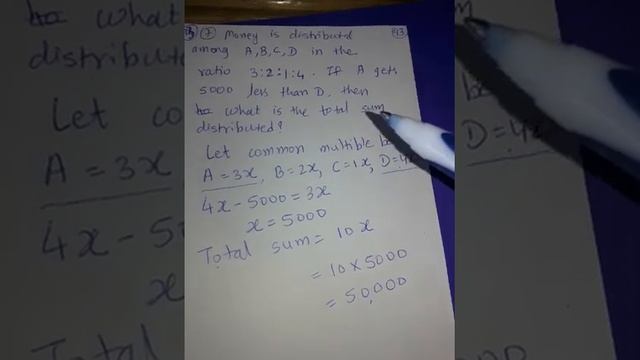 7 Money is distributd
among A,B,C,D in the
ratio 3:2:1:4. If A gets
5000 less than D, then
what is the total sum
distributed?
Let common multible be
A = 3x, B = 2x, C = 1x, D = 4x
4x - 5000 = 3x
x = 5000
Total sum = 10x
= 10 x 5000
= 50,000